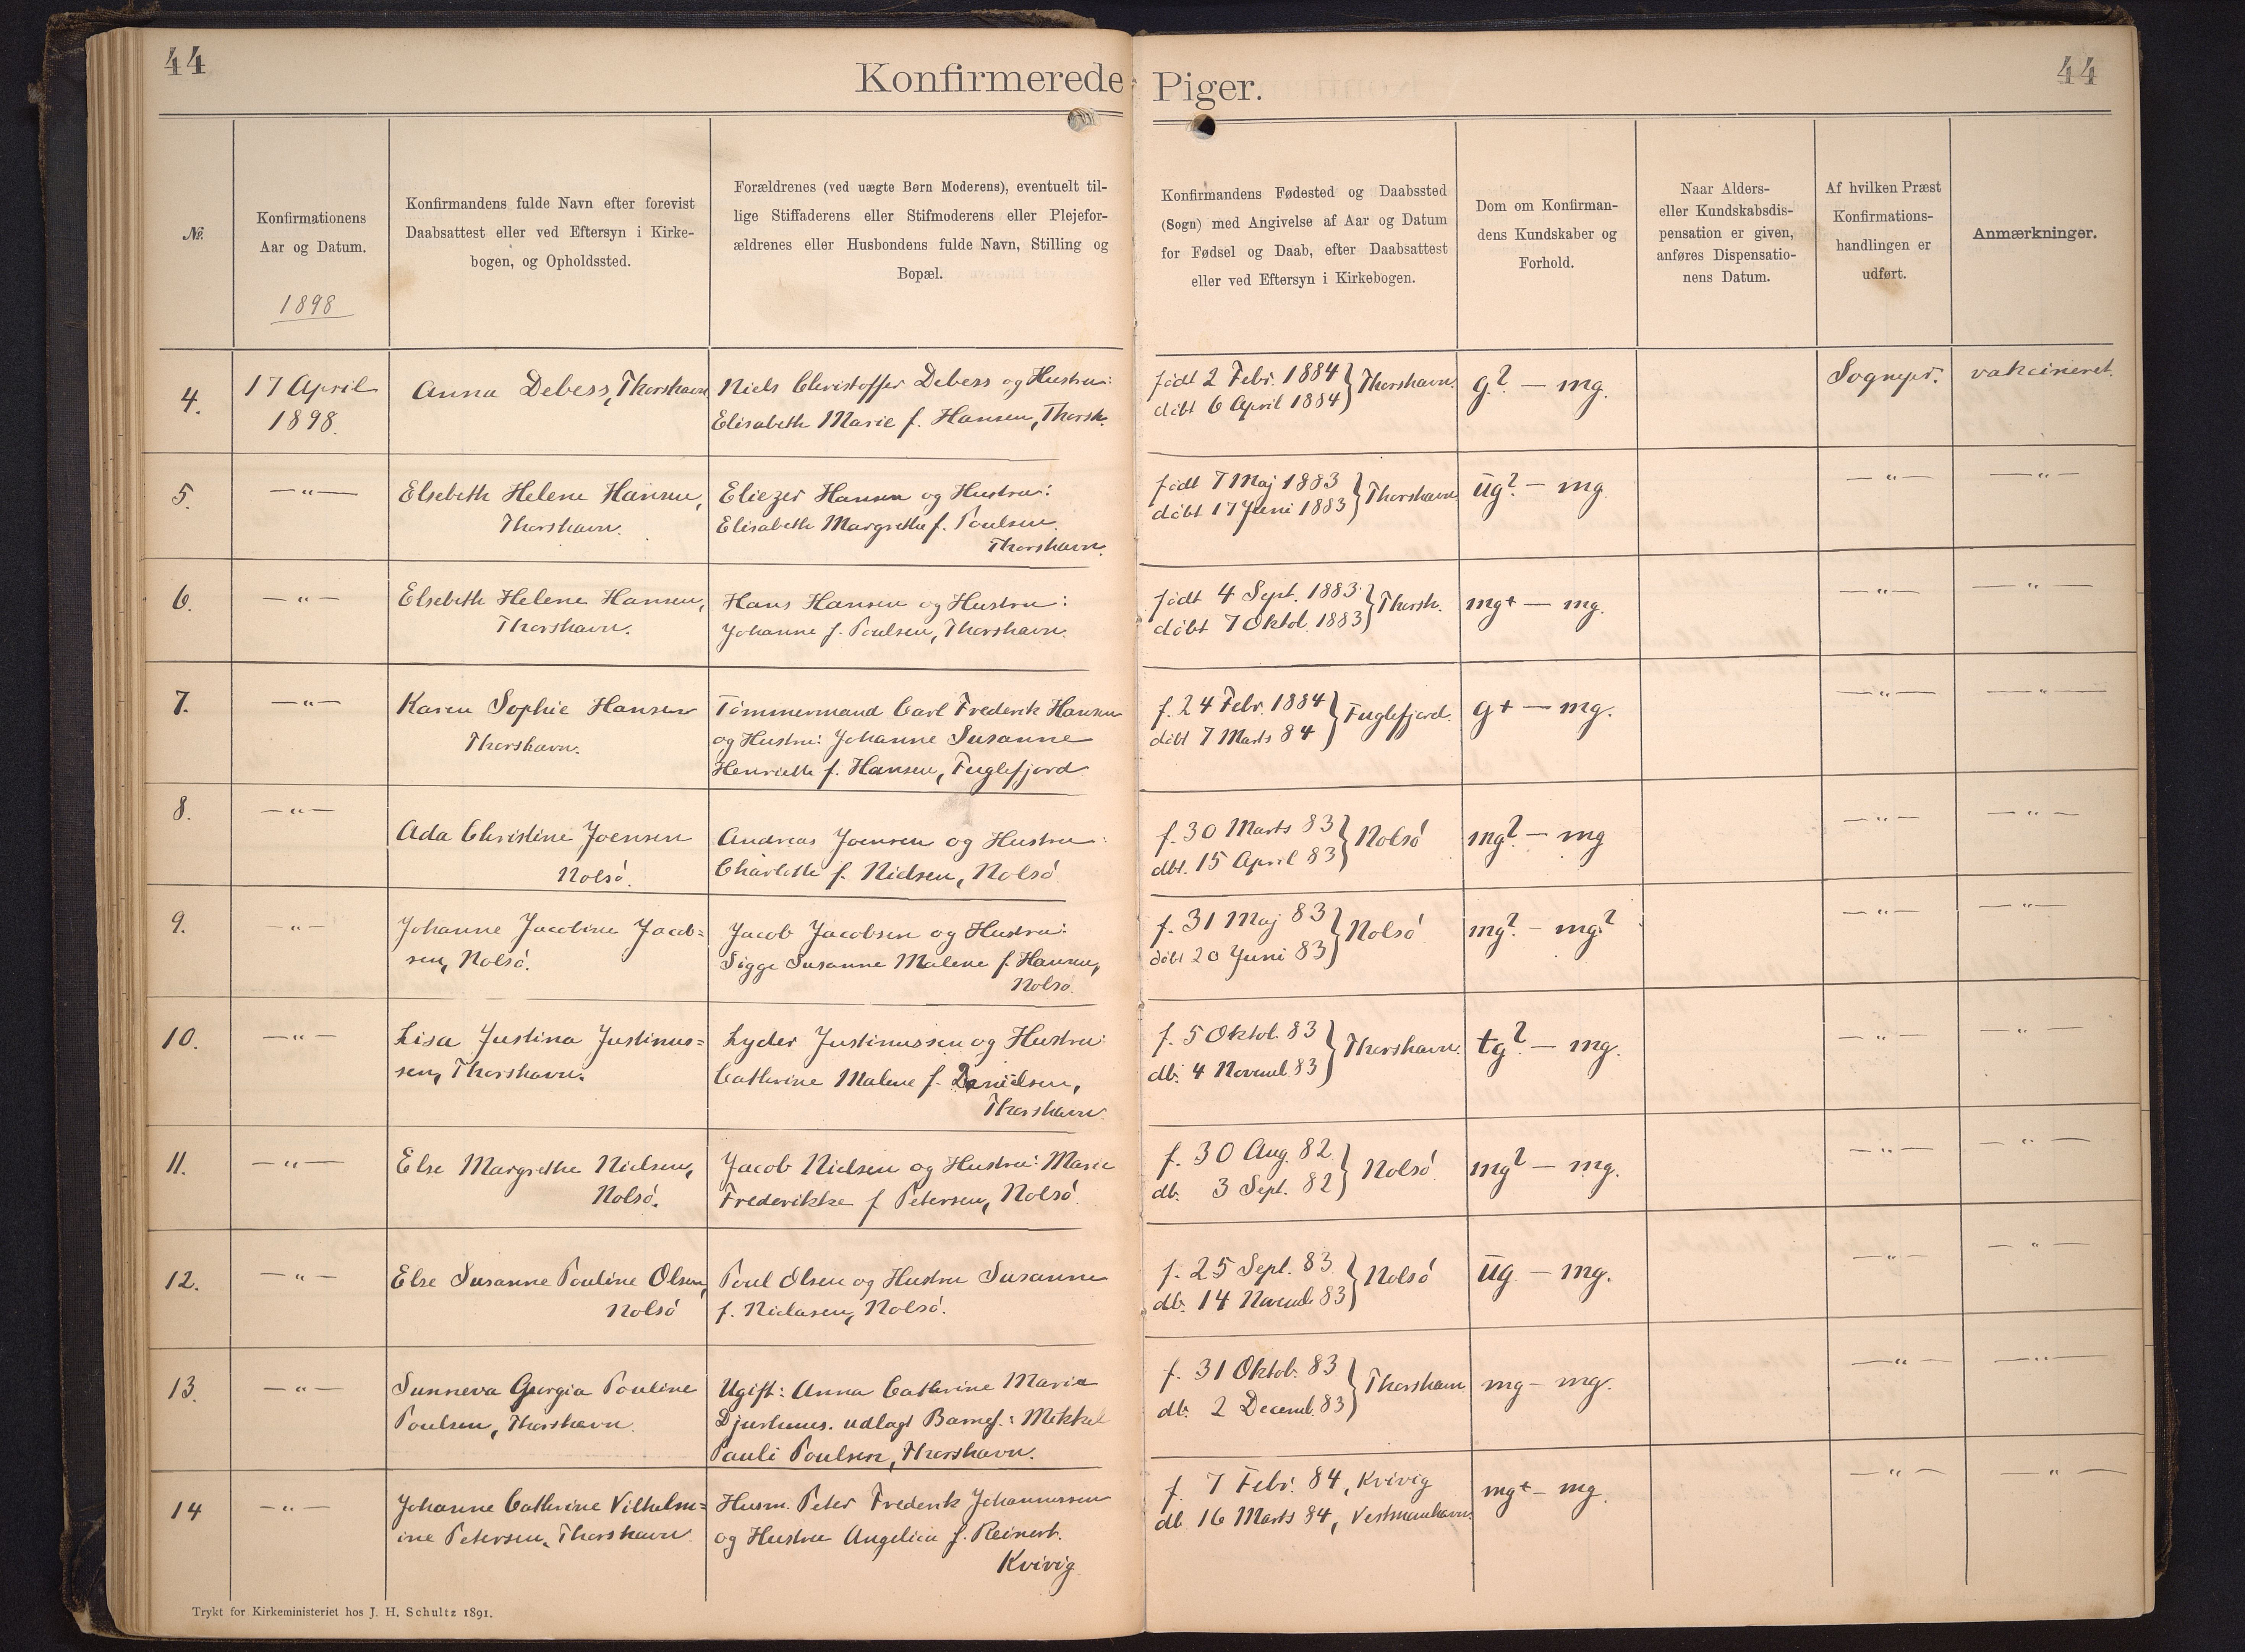 44
Konfirmerede Piger.
44
№
Konfirmationens
Aar og Datum.
1898
Konfirmandens fulde Navn efter forevist
Daabsattest eller ved Eftersyn i Kirke-
bogen, og Opholdssted.
Forældrenes (ved uægte Børn Moderens), eventuelt til-
lige Stiffaderens eller Stifmoderens eller Plejefor-
ældrenes eller Husbondens fulde Navn, Stilling og
Bopæl.
Konfirmandens Fødested og Daabssted
(Sogn) med Angivelse af Aar og Datum
for Fødsel og Daab, efter Daabsattest
eller ved Eftersyn i Kirkebogen.
Dom om Konfirman-
dens Kundskaber og
Forhold.
Naar Alders-
eller Kundskabsdis-
pensation er given,
anføres Dispensatio-
nens Datum.
Af hvilken Præst
Konfirmations-
handlingen er
udført.
Anmærkninger.
4.
17 April
1898.
Anna Debess, Thorshavn
Niels Christoffer Debess og Hustru:
Elisabeth Marie f. Hansen, Thorsh.
født 2 Febr. 1884
døbt 6 April 1884
} Thorshavn.
g? — mg.
Sognepr.
vakcineret.
5.
—"—
Elsebeth Helene Hansen,
Thorshavn.
Eliezer Hansen og Hustru:
Elisabeth Margrethe f. Poulsen.
Thorshavn.
født 7 Maj 1883
døbt 17 Juni 1883
} Thorshavn
ūg? — mg.
—"—
—"—
6.
—"—
Elsebeth Helene Hansen,
Thorshavn.
Hans Hansen og Hustru:
Johanne f. Poulsen, Thorshavn.
født 4 Sept. 1883.
døbt 7 Oktob. 1883
} Thorsh.
mg+ — mg.
—"—
—"—
7.
—"—
Karen Sophie Hansen
Thorshavn.
Tømmermand Carl Frederik Hansen
og Hustru: Johanne Susanne
Henriette f. Hansen, Fuglefjord
f. 24 Febr. 1884
døbt 7 Marts 84
} Fuglefjord.
g+ — mg.
—"—
—"—
8.
—"—
Ada Christine Joensen
Nolsó.
Andreas Joensen og Hustru:
Charlotte f. Nielsen, Nolsó
f. 30 Marts 83
dbt. 15 April 83
} Nolsó
mg? — mg
—"—
—"—
9.
—"—
Johanne Jacobine Jacob=
sen, Nolsó.
Jacob Jacobsen og Hustru:
Sigge Susanne Malene f. Hansen,
Nolsó.
f. 31 Maj 83
døbt 20 Juni 83
} Nolsó
mg? — mg?
—"—
—"—
10.
—"—
Lisa Justina Justinus=
sen, Thorshavn.
Lyder Justinussen og Hustru:
Cathrine Malene f. Danielsen,
Thorshavn.
f. 5 Oktob. 83
db. 4 Novemb. 83
} Thorshavn.
tg? — mg.
—"—
—"—
11.
—"—
Else Margrethe Nielsen,
Nolsó.
Jacob Nielsen og Hustru: Marie
Frederikke f. Petersen, Nolsó.
f. 30 Aug. 82
db. 3 Sept. 82
} Nolsó
mg? — mg.
—"—
—"—
12.
—"—
Else Susanne Pouline Olsen,
Nolsó
Poul Olsen og Hustru Susanne
f. Niclasen, Nolsó.
f. 25 Sept. 83
db. 14 Novemb. 83
} Nolsó
ūg — mg.
—"—
—"—
13.
—"—
Sunneva Georgia Pouline
Poulsen, Thorshavn.
Ugift: Anna Cathrine Maria
Djurhuus. udlagt Barnef.: Mikkel
Pauli Poulsen, Thorshavn.
f. 31 Oktob. 83
db. 2 Decemb. 83
} Thorshavn
mg — mg.
—"—
—"—
14
—"—
Johanne Cathrine Vilhelm=
ine Petersen, Thorshavn.
Husm. Peter Frederik Johannessen
og Hustru Angelica f. Reinert.
Kvivig
f. 7 Febr. 84, Kvivig
db. 16 Marts 84, Vestmanhavn.
mg+ — mg.
—"—
—"—
Trykt for Kirkeministeriet hos J. H. Schultz 1891.